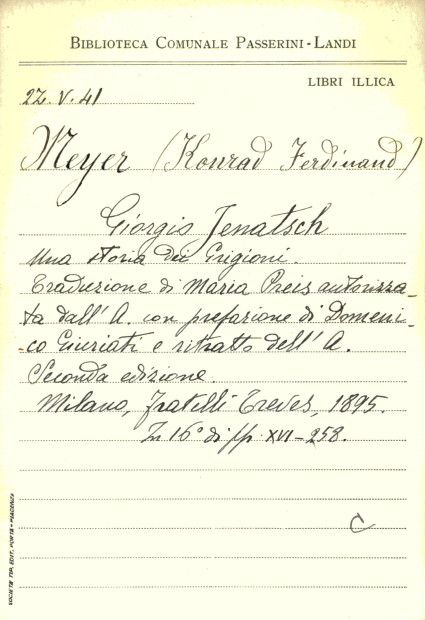 BIBLIOTECA COMUNALE PASSERINI-LANDI
LIBRI ILLICA
22.V.41
Meyer (Konrad Ferdinand)
Giorgio Jenatsch
Una storia dei Grigioni.
Traduzione di Maria Preis autorizza-
ta dall'A. con prefazione di Domeni-
co Giuriati e ritratto dell'A.
Seconda edizione.
Milano, Fratelli Treves, 1895.
In 16° di pp. XVI-258.
C
SOCIETÀ TIP. EDIT. PORTA - PIACENZA